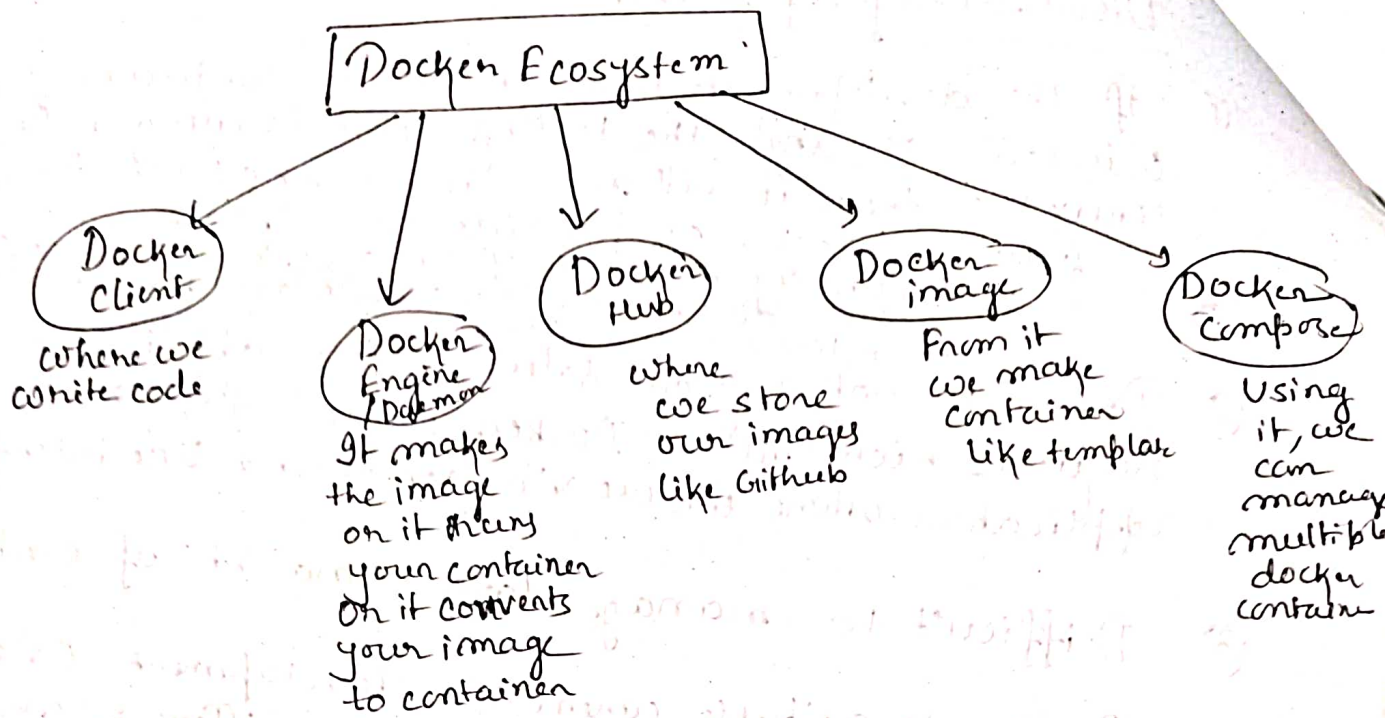 Docker Ecosystem
Docker
Client
where we
write code
Docker
Engine
/Daemon
It makes
the image
or it runs
your container
or it converts
your image
to container
Docker
Hub
where
we store
our images
like Github
Docker
image
From it
we make
container
like templat
Docker
Compose
Using
it, we
can
manage
multiple
docker
containe